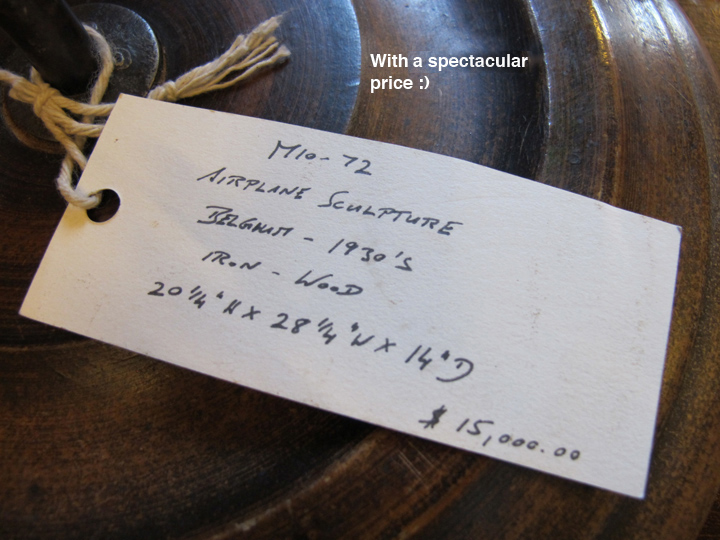 With a spectacular
price :)
M10-72
AIRPLANE SCULPTURE
BELGIUM - 1930's
IRON - WOOD
20 1/4" H x 28 1/4" W x 14" D
$ 15,000.00